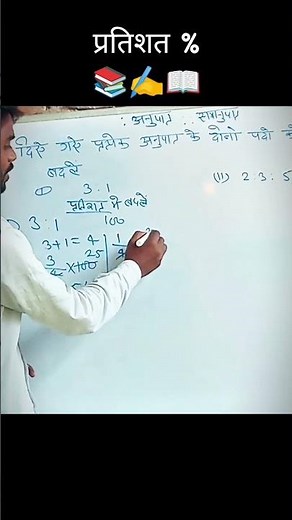 प्रतिशत %
: अनुपात : : समानुपात
दिये गये प्रत्येक अनुपात के दोनों पदों
बदलें
① 3 : 1 (II) 2 : 3 : 5
प्रतिशत में बदलें
100
3 : 1
3 + 1 = 4
3/4 × 100
25
1